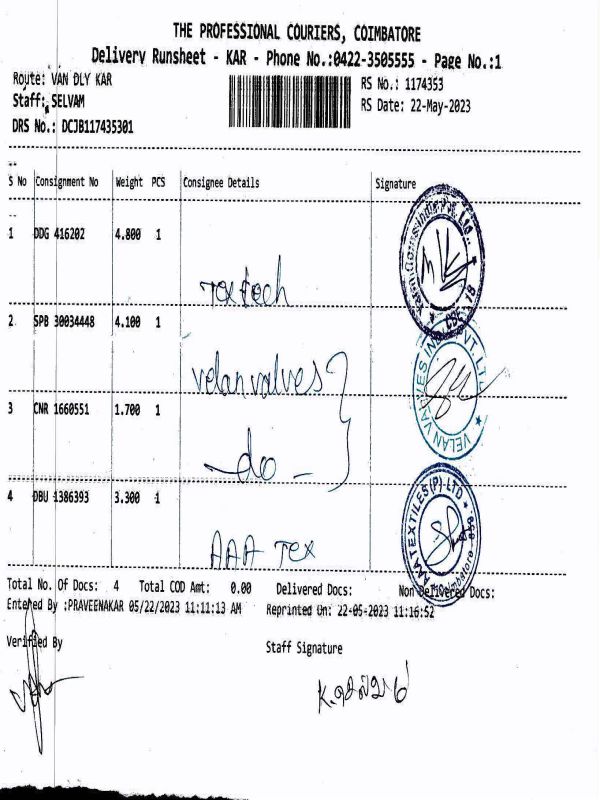 THE PROFESSIONAL COURIERS, COIMBATORE
Delivery Runsheet - KAR - Phone No.:0422-3505555 - Page No.:1
Route: VAN DLY KAR
RS No.: 1174353
Staff: SELVAM
RS Date: 22-May-2023
DRS No.: DCJB117435301
S No Consignment No Weight PCS Consignee Details Signature
1 DDG 416202 4.800 1
2 SPB 30034448 4.100 1
velan valves
VELAN VALVES
3 CNR 1660551 1.700 1
- do -
4 DBU 1386393 3.300 1
AAA TEXTILES(P)-LTD
Coimbatore
AAA Tex
Total No. Of Docs: 4 Total COD Amt: 0.00 Delivered Docs: Non Delivered Docs:
Entered By :PRAVEENAKAR 05/22/2023 11:11:13 AM Reprinted On: 22-05-2023 11:16:52
Verified By
Staff Signature